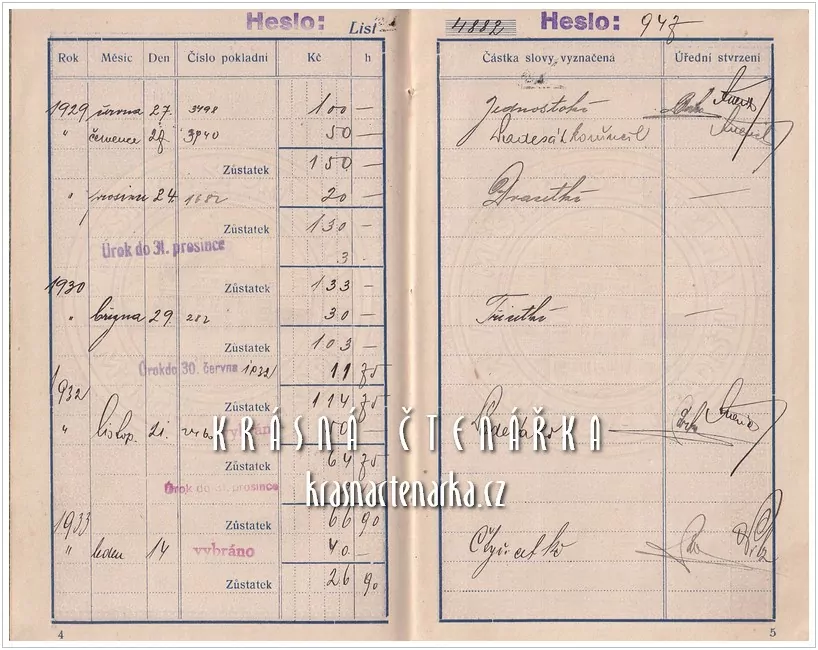 Heslo:
List
4882 Heslo: 947
Rok Měsíc Den Číslo pokladní Kč h
Částka slovy vyznačená Úřední stvrzení
1929 června 27. 3498 100 —
Jednosto kč
" července 27 3940 50 —
Padesát korun čsl
Zůstatek 150 —
" prosinu 24. 20 —
Dvacet kč —
Zůstatek 130 —
Úrok do 31. prosince 3 -
1930 Zůstatek 133 —
" března 29. 282 30 —
Třicet kč —
Zůstatek 103 —
Úrok do 30. června 1932 11 75
1932
Zůstatek 114 75
" listop. 21. 50 —
Padesát kč
KRÁSNÁ ČTENÁŘKA
Zůstatek 64 75
Úrok do 31. prosince
krasnactenarka.cz
1933 Zůstatek 66 90
" leden 14 vybráno 40 —
Čtyřicet kč
Zůstatek 26 90
4
5